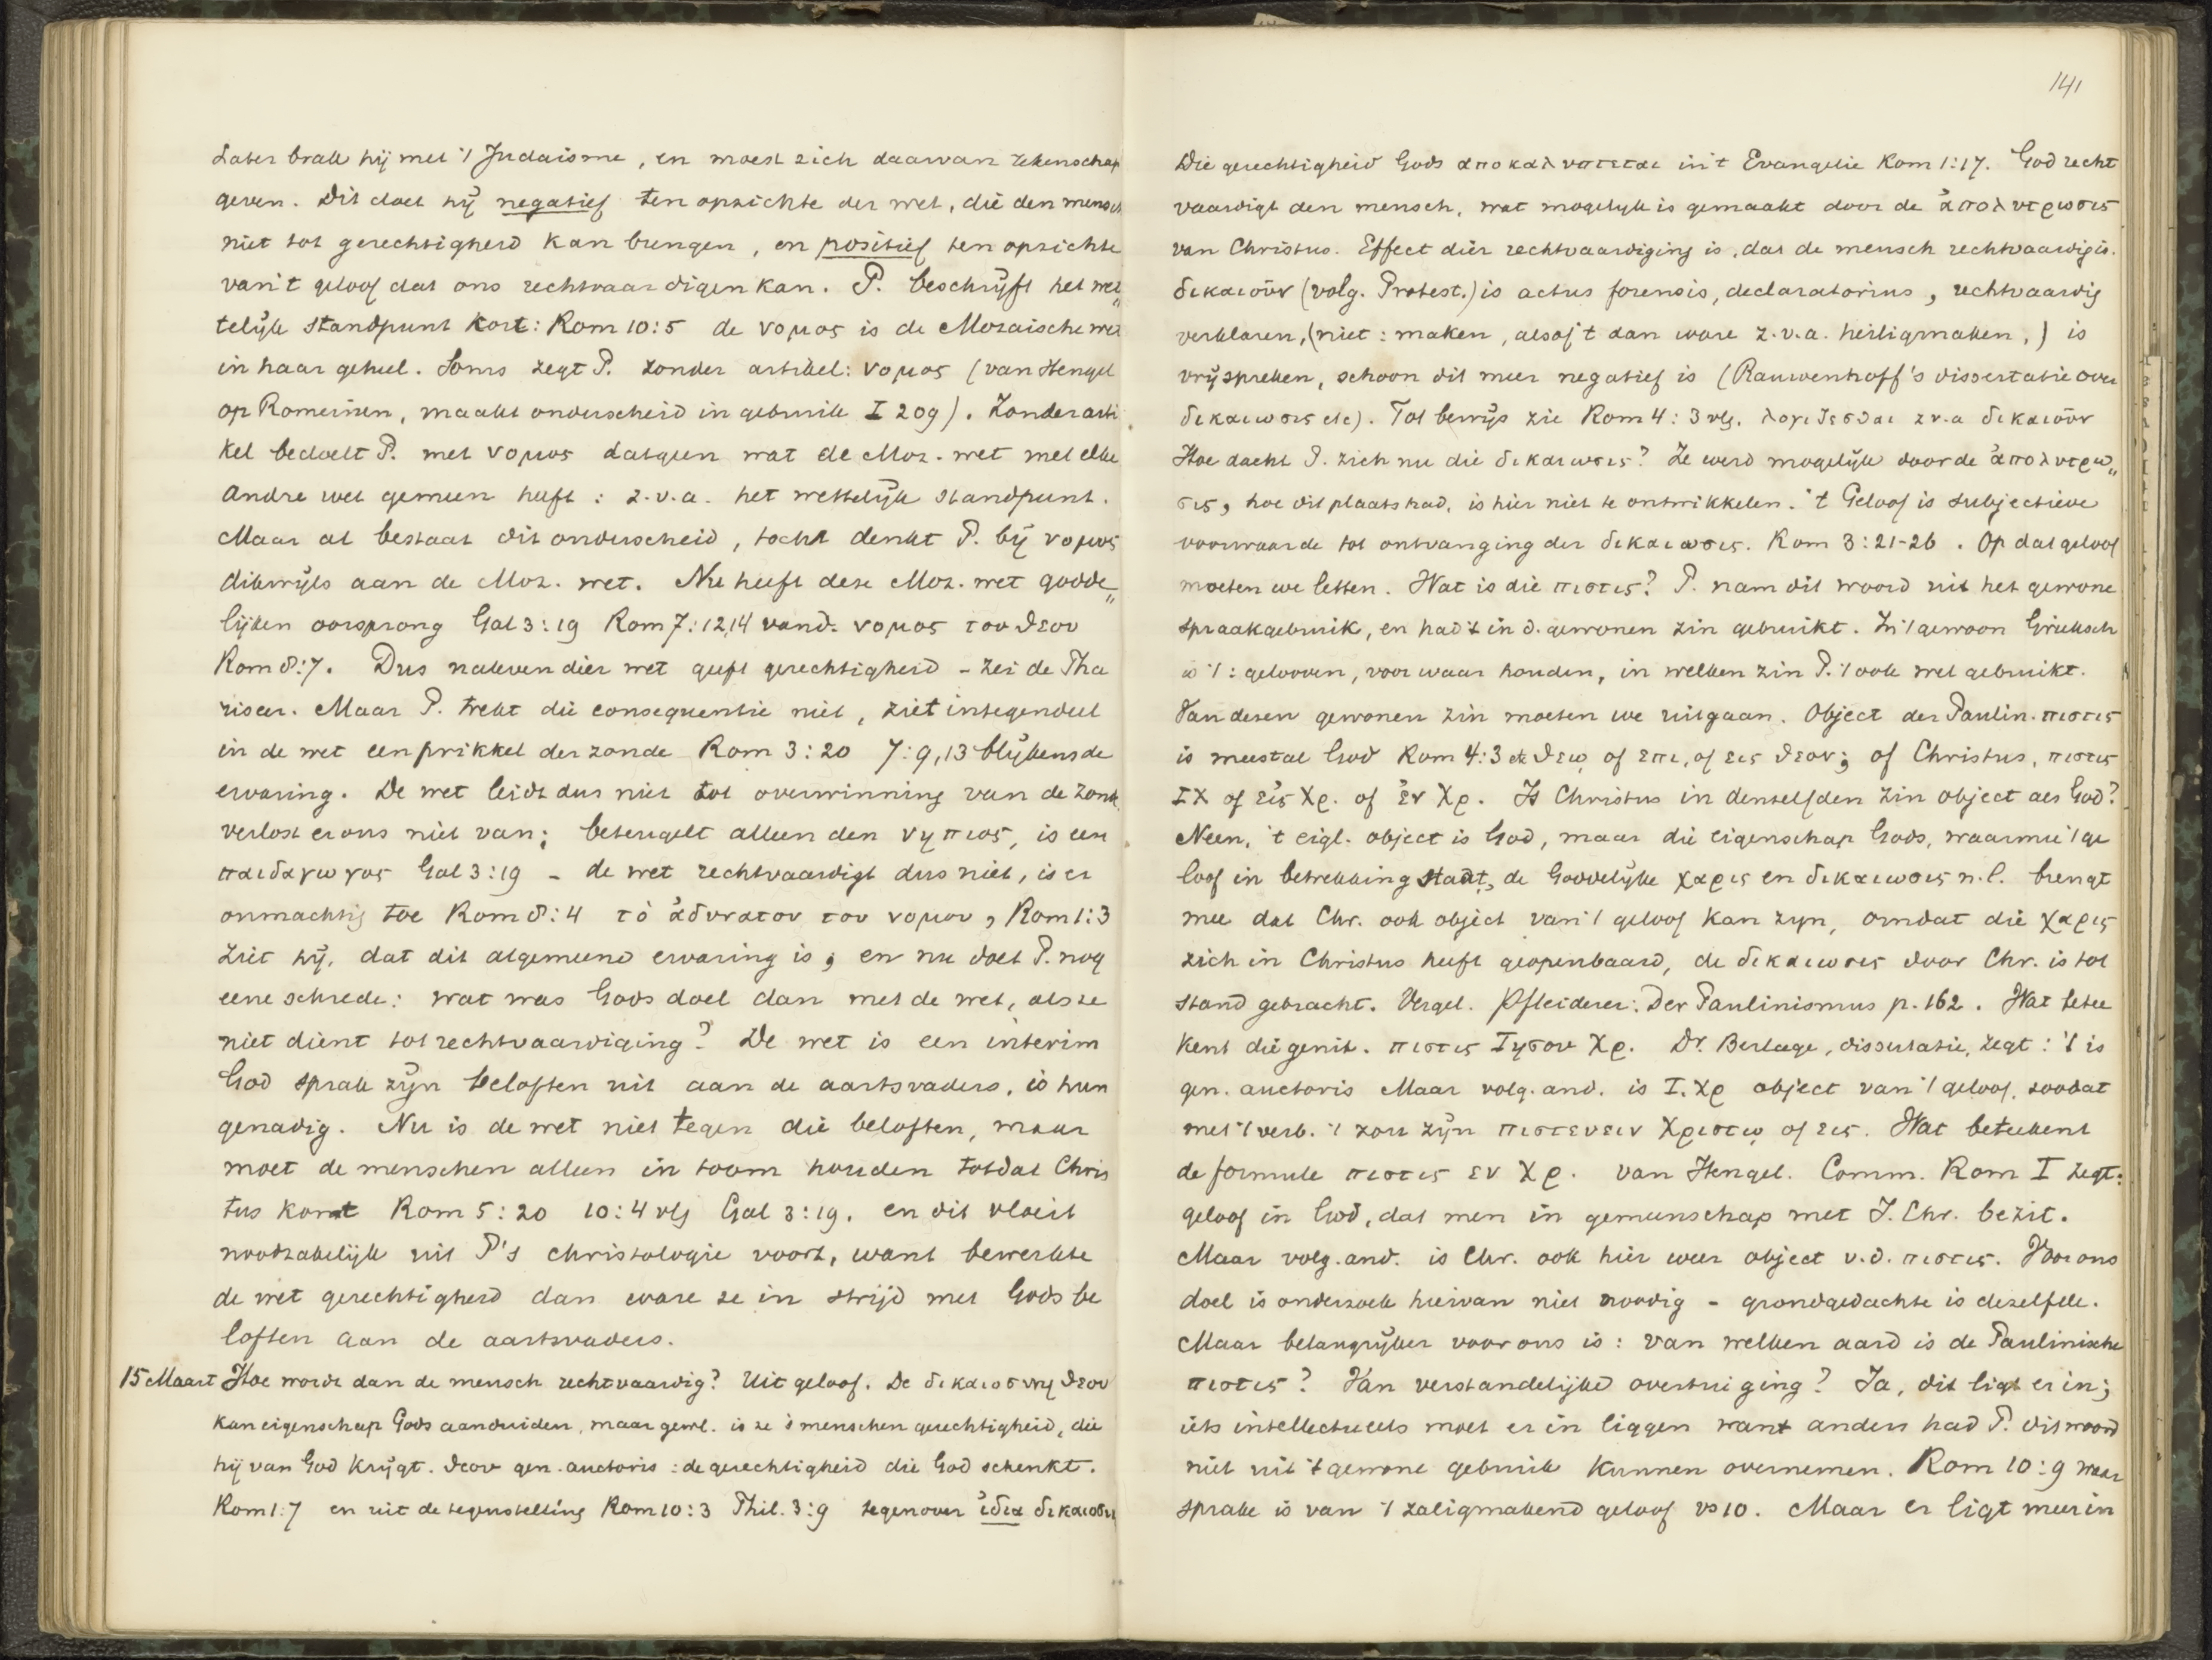 Later brak hij met 't Judaisme, en moest zich daarvan rekenschap
geven. Dit doet hij negatief ten opzichte der wet, die den mensch
niet tot gerechtigheid kan brengen, en positief ten opzichte
van 't geloof dat ons rechtvaardigen kan. P. beschrijft het wet„
telijk standpunt kort: Rom 10:5 de νομος is de Mozaische wet
in haar geheel. Soms zegt P. zonder artikel: νομος (van Hengel
op Romeinen, maakt onderscheid in gebruik I 209). Zonder arti
kel bedoelt P. met νομος datgeen wat de Moz. wet met elke
andre wet gemeen heeft: z.v.a. het wettelijk standpunt.
Maar al bestaat dit onderscheid, tocht denkt P. bij νομος
dikwijls aan de Moz. wet. Nu heeft deze Moz. wet godde„
lijken oorsprong Gal 3:19 Rom 7:12,14 vand. νομος του θεου
Rom 8:7. Dus naleven dier wet geeft gerechtigheid - zei de Pha
riseer. Maar P. trekt die consequentie niet, ziet integendeel
in de wet een prikkel der zonde Rom 3:20 7:9,13 blijkens de
ervaring. De wet leidt dus niet tot overwinning van de zonde
verlost er ons niet van; beteugelt alleen den νηπιος, is een
παιδαγωγος Gal 3:19 - de wet rechtvaardigt dus niet, is er
onmachtig toe Rom 8:4 τὸ ἀδυνατον του νομου, Rom 1:3
ziet hij, dat dit algemeene ervaring is; en nu doet P. nog
eene schrede: wat was Gods doel dan met de wet, als ze
niet dient tot rechtvaardiging? De wet is een interim
God sprak zijn beloften uit aan de aartsvaders, is hun
genadig. Nu is de wet niet tegen die beloften, maar
moet de menschen alleen in toom houden totdat Chris
tus komt Rom 5:20 10:4 vlg Gal 3:19. en dit vloeit
noodzakelijk uit P's christologie voort, want bewerkte
de wet gerechtigheid dan ware ze in strijd met Gods be
loften aan de aartsvaders.
15 Maart Hoe wordt dan de mensch rechtvaardig? Uit geloof. De δικαιοσυνη θεου
kan eigenschap Gods aanduiden, maar gewl. is ze 's menschen gerechtigheid, die
hij van God krijgt. θεου gen. auctoris: de gerechtigheid die God schenkt.
Rom 1:7 en uit de tegenstelling Rom 10:3 Phil. 3:9 tegenover ἰδια δικαιοσυ
141
Die gerechtigheid Gods αποκαλυπτεται in 't Evangelie Rom 1:17. God recht
vaardigt den mensch, wat mogelijk is gemaakt door de ἀπολυτρωσις
van Christus. Effect dier rechtvaardiging is, dat de mensch rechtvaardig is.
δικαιοῦν (volg. Protest.) is actus forensis, declaratorius, rechtvaardig
verklaren, (niet: maken, alsof 't dan ware z.v.a. heiligmaken,) is
vrijspreken, schoon dit meer negatief is (Rauwenhoff's dissertatie over
δικαιωσις etc). Tot bewijs zie Rom 4:3 vlg. λογιζεσθαι z.v.a δικαιοῦν
Hoe dacht P. zich nu die δικαιωσις? Ze werd mogelijk door de ἀπολυτρω„
σις, hoe dit plaats had, is hier niet te ontwikkelen. 't Geloof is subjectieve
voorwaarde tot ontvanging der δικαιωσις. Rom 3:21-26. Op dat geloof
moeten we letten. Wat is die πιστις? P. nam dit woord uit het gewone
spraakgebruik, en had 't in d. gewonen zin gebruikt. In 't gewoon Grieksch
is 't: gelooven, voor waar houden, in welken zin P. 't ook wel gebruikt.
Van dezen gewonen zin moeten we uitgaan. Object der Paulin. πιστις
is meestal God Rom 4:3 etc θεω of επι, of εις θεον; of Christus, πιστις
ΙΧ of εἰς Χρ. of ἐν Χρ. Is Christus in denzelfden zin object als God?
Neen, 't eigl. object is God, maar die eigenschap Gods, waarmee 't ge
loof in betrekking staat, de Goddelijke χαρις en δικαιωσις n.l. brengt
mee dat Chr. ook object van 't geloof kan zijn, omdat die χαρις
zich in Christus heeft geopenbaard, de δικαιωσις door Chr. is tot
stand gebracht. Vergel. Pfleiderer: Der Paulinismus p. 162. Wat betee
kent die genit. πιστις Ιησου Χρ. Dr. Berlage, dissertatie, zegt: 't is
gen. auctoris Maar volg. and. is I. Χρ object van 't geloof, zoodat
met 't verb. 't zou zijn πιστευειν Χριστω of εις. Wat beteekent
de formule πιστις εν Χρ. van Hengel. Comm. Rom I zegt:
geloof in God, dat men in gemeenschap met J. Chr. bezit.
Maar volg. and. is Chr. ook hier weer object v.d. πιστις. Voor ons
doel is onderzoek hiervan niet noodig - grondgedachte is dezelfde.
Maar belangrijker voor ons is: van welken aard is de Paulinische
πιστις? Van verstandelijke overtuiging? Ja, dit ligt er in;
iets intellectueels moet er in liggen want anders had P. dit woord
niet uit 't gewone gebruik kunnen overnemen. Rom 10:9 waar
sprake is van 't zaligmakend geloof vs 10. Maar er ligt meer in